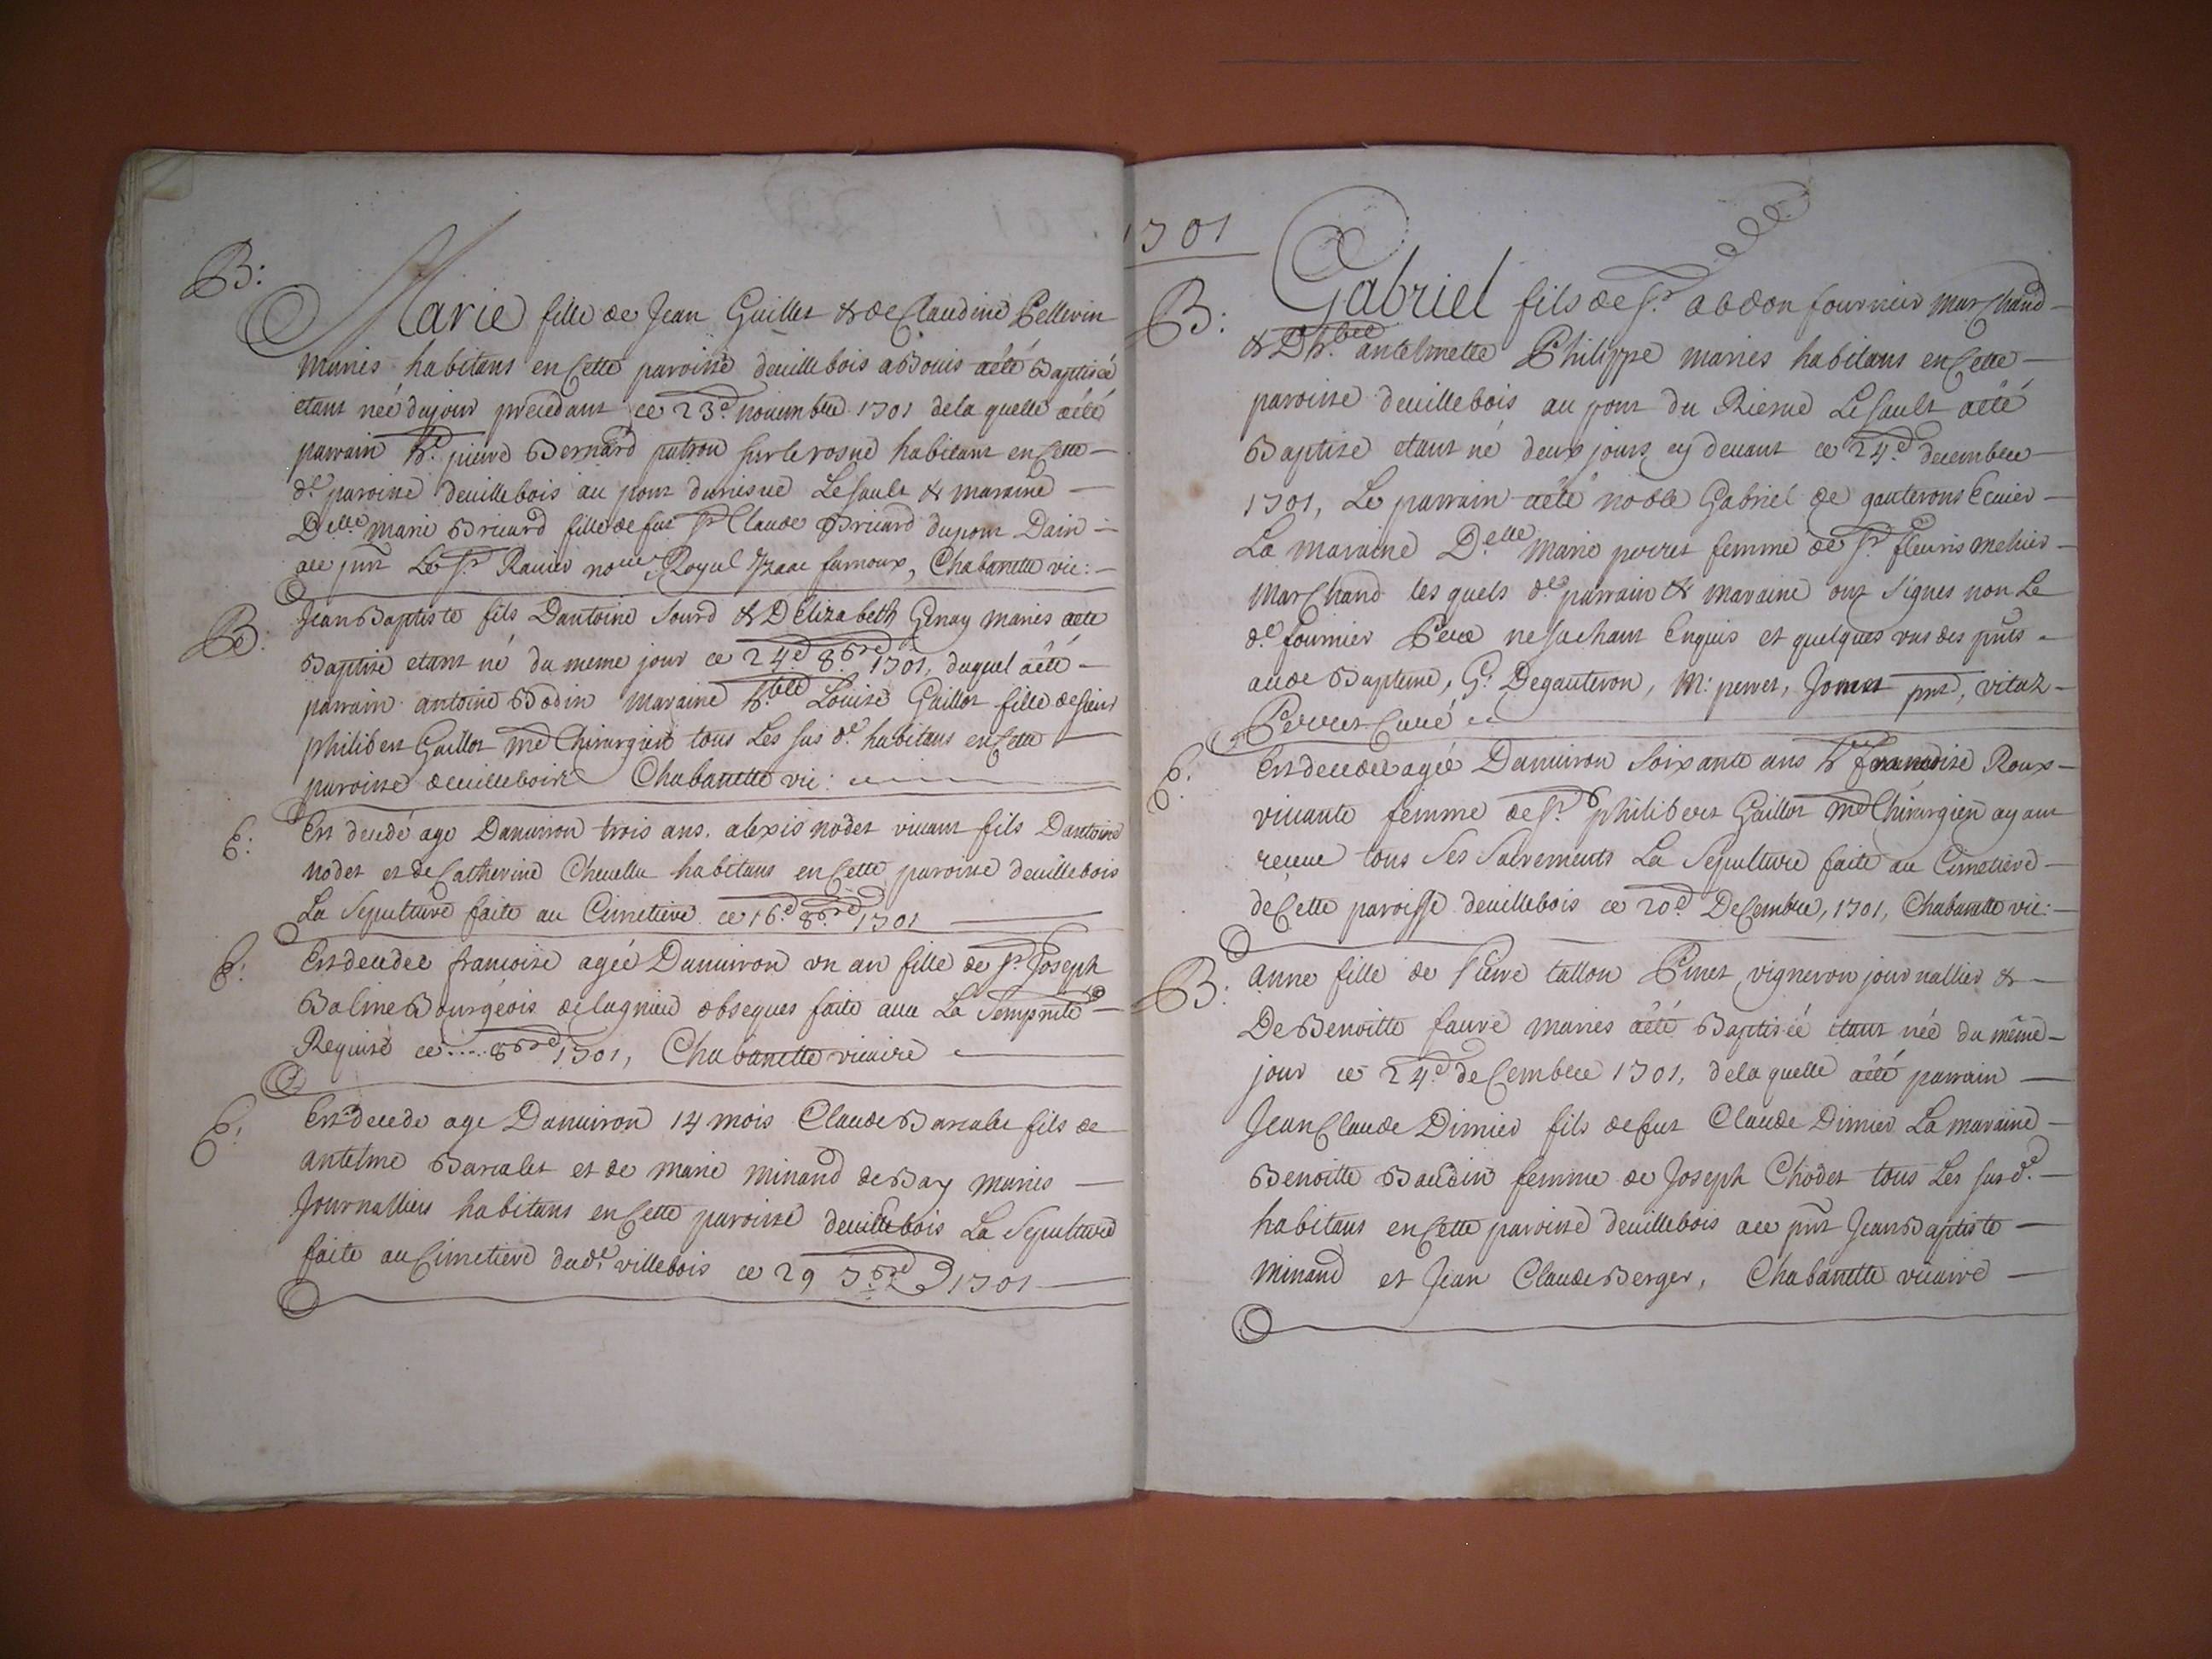 B:
Marie fille de Jean Guillet & de Claudine Pellerin
maries habitans en Cette paroisse deuillebois a Bouis aété Baptiseé
etant neé du jour precedant ce 23.e nouembre 1701 de la quelle aété
parrain h.e pierre Bernard patron sur le rosne habitant en Cette
d.e paroisse deuillebois au pont du Le sault & maraine
D.elle Marie Bricard fille de fut s.r Claude Bricard du pont Dain
Royal Chabanette vic:
B:
Jean Baptiste fils Dantoine Sourd & Delizabeth Genay maries aete
Baptise etant né du meme jour ce 24.e 8.bre 1701, duquel aété
parrain antoine Bodin Maraine h.ble Louise Gaillot fille de sieur
philibert Gaillot m.e Chirurgien tous Les sus d.e habitans en Cette
paroisse deuilleboire Chabanette vic:
E:
Est decedé age Danuiron trois ans. alexis nodet viuant fils Dantoine
nodet et de Catherine habitans en Cette paroisse deuillebois
La Sepulture faite au Cimetiere ce 16.e 8.bre 1701
E:
Est decedeé francoise ageé Danuiron vn an fille de s.r Joseph
Balme Bourgeois de lagnieu obseques faite auec La
Requise ce .... 8.bre 1701, Chabanette vicaire
E:
Est decede age Danuiron 14 mois Claude Barcalet fils de
antelme Barcalet et de marie minand de Bay maries
Journalliers habitans en Cette paroisse deuillebois La Sepulture
faite au Cimetiere dud.t villebois ce 29 7.bre 1701
1701
B:
Gabriel fils de s.r abdon fournier marchand
& D h.ble antelmette Philippe maries habitans en Cette
paroisse deuillebois au pont du Le sault aété
Baptise etant né deux jours cy deuant ce 24.e decembre
1701, Le parrain aété noble Gabriel de gauterons Ecuier
La maraine D.elle Marie perret femme de s.r fleuris
Marchand les quels d.e parrain & maraine ont Signes non Le
d.e fournier Pere ne sachant Enquis et quelques vns des pnts
au de Bapteme, G: Degauteron, M: perret, Jomar pnt, vitaz
Perret Curé
E:
Est decedeé ageé Danuiron Soixante ans h.e francoise Roux
viuante femme de s.r philibert Gaillot m.e Chirurgien ayant
receue tous Ses Sacrements La Sepulture faite au Cimetiere
de Cette paroisse deuillebois ce 20.e Decembre, 1701, Chabanette vic:
B:
Anne fille de Pierre tallon Pinet vigneron journallier &
De Benoitte faure maries aété Baptiseé etant née du même
jour ce 24.e decembre 1701, de la quelle aété parrain
Jean Claude Dimier fils de fut Claude Dimier La maraine
Benoitte Baudin femme de Joseph Chodet tous Les sus d.e
habitans en Cette paroisse deuillebois ace pnt Jean Baptiste
Minand et Jean Claude Berger, Chabanette vicaire